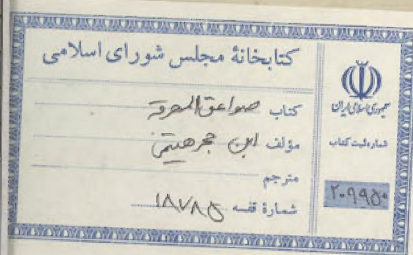 کتابخانهٔ مجلس شورای اسلامی
کتاب صواعق المحرقة
مؤلف ابن حجر هیتمی
مترجم
شمارهٔ قفسه ۱۸۷۸۵
جمهوری اسلامی ایران
شماره ثبت کتاب
۲۰۹۹۵۰